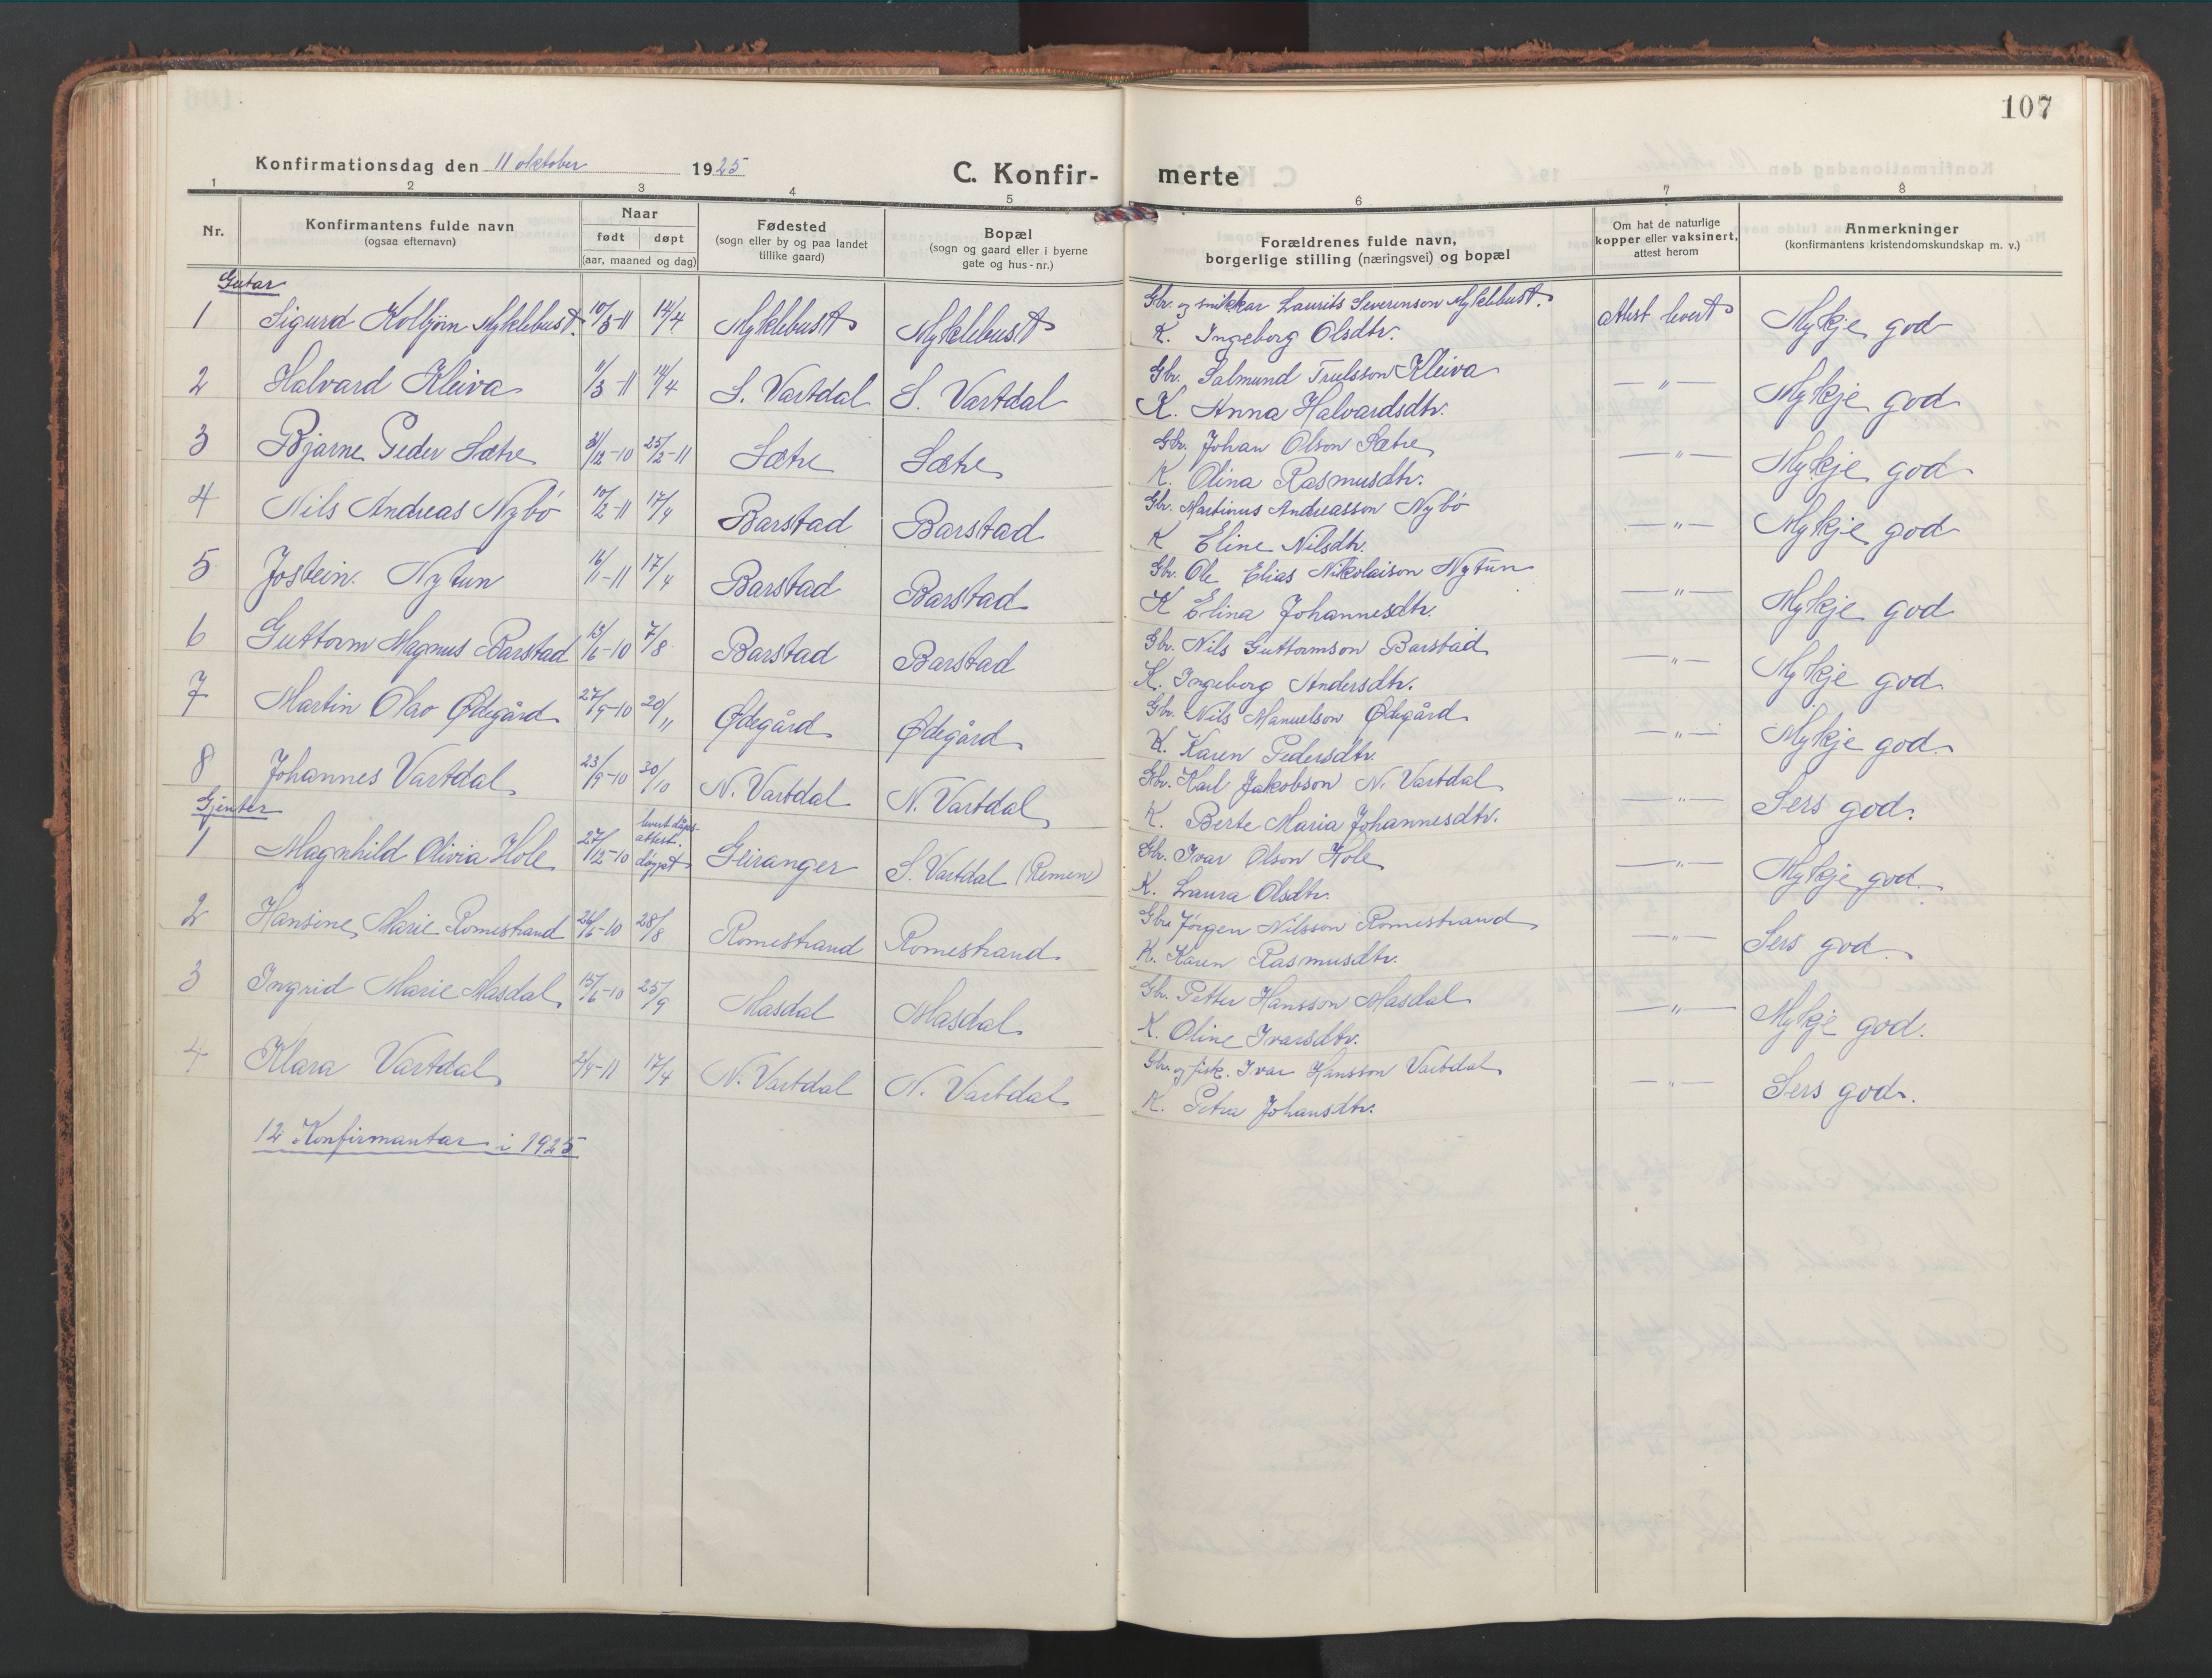 107
Konfirmationsdag den 11 oktober 1925 C. Konfir- merte
1 2 3 4 5 6 7 8
Nr. Konfirmantens fulde navn (ogsaa efternavn) Naar født døpt (aar, maaned og dag) Fødested (sogn eller by og paa landet tillike gaard) Bopæl (sogn og gaard eller i byerne gate og hus-nr.) Forældrenes fulde navn, borgerlige stilling (næringsvei) og bopæl Om hat de naturlige kopper eller vaksinert, attest herom Anmerkninger (konfirmantens kristendomskundskap m. v.)
Gutar
1 Sigurd Kolbjörn Myklebust 10/3-11 14/4 Myklebust Myklebust Gbr. og snikkar Laurits Severinson Myklebust. Attest levert Mykje god
K. Ingeborg Olsdtr.
2 Halvard Kleiva 11/3-11 14/4 S. Vartdal S. Vartdal Gbr. Salmund Trulsson Kleiva —"— Mykje god
K. Anna Halvardsdtr.
3 Bjarne Peder Sætre 31/12-10 25/2-11 Sætre Sætre Gbr. Johan Olson Sætre —"— Mykje god
K. Olina Rasmusdtr.
4 Nils Andreas Nybö 10/2-11 17/4 Barstad Barstad Gbr. Martinus Andreasson Nybö —"— Mykje god
K Eline Nilsdtr.
5 Jostein Nytun 16/1-11 17/4 Barstad Barstad Gbr. Ole Elias Nikolaison Nytun —"— Mykje god
K Elina Johannesdtr.
6 Guttorm Magnus Barstad 13/6-10 7/8 Barstad Barstad Gbr. Nils Guttormson Barstad —"— Mykje god
K. Ingeborg Andersdtr.
7 Martin Olav Ødegård 27/9-10 20/11 Ødegård Ødegård Gbr. Nils Manuelson Ødegård —"— Mykje god.
K. Karen Pedersdtr.
8 Johannes Vartdal 23/9-10 30/10 N. Vartdal N. Vartdal Gbr. Karl Jakobson N. Vartdal —"— Sers god.
K. Berte Maria Johannesdtr.
Gjenter
1 Magnhild Olivia Hole 27/12-10 levert dåps-attest. döypt Geiranger S. Vartdal (Remen) Gbr. Ivar Olson Hole —"— Mykje god.
K. Laura Olsdtr.
2 Hansine Marie Romestrand 26/6-10 28/8 Romestrand Romestrand Gbr. Jörgen Nilsson Romestrand —"— Sers god.
K. Karen Rasmusdtr.
3 Ingrid Marie Masdal 15/6-10 25/9 Masdal Masdal Gbr. Petter Hansson Masdal —"— Mykje god.
K. Oline Ivarsdtr.
4 Klara Vartdal 2/4-11 17/4 N. Vartdal N. Vartdal Gbr. og fisk. Ivar Hansson Vartdal —"— Sers god.
K. Petra Johansdtr.
12 Konfirmantar i 1925